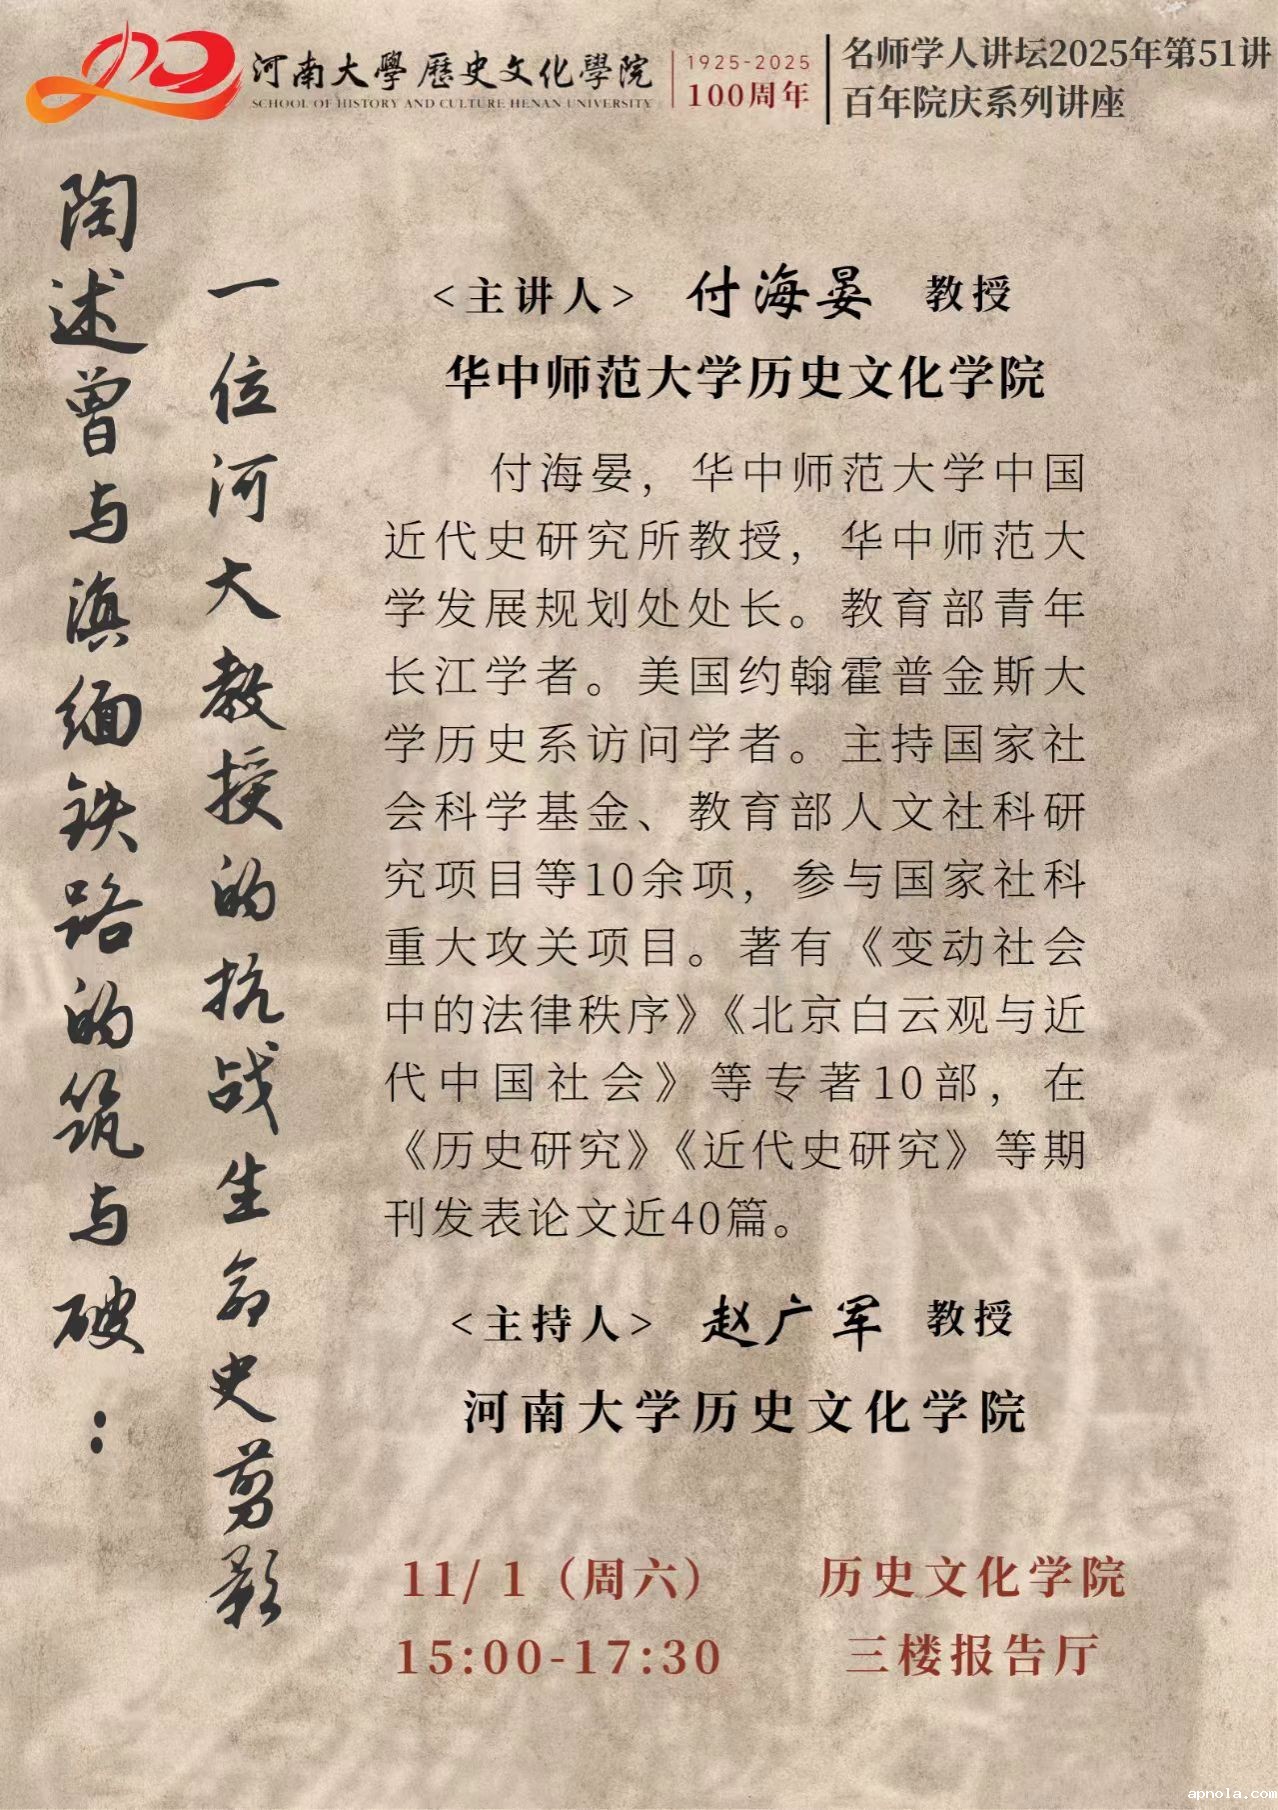 河南大學 歷史文化學院
SCHOOL OF HISTORY AND CULTURE HENAN UNIVERSITY
1925-2025
100周年
名师学人讲坛2025年第51讲
百年院庆系列讲座
陶述曾与滇缅铁路的筑与破：
一位河大教授的抗战生命史剪影
<主讲人> 付海晏 教授
华中师范大学历史文化学院
付海晏，华中师范大学中国
近代史研究所教授，华中师范大
学发展规划处处长。教育部青年
长江学者。美国约翰霍普金斯大
学历史系访问学者。主持国家社
会科学基金、教育部人文社科研
究项目等10余项，参与国家社科
重大攻关项目。著有《变动社会
中的法律秩序》《北京白云观与近
代中国社会》等专著10部，在
《历史研究》《近代史研究》等期
刊发表论文近40篇。
<主持人> 赵广军 教授
河南大学历史文化学院
11/ 1（周六）
15:00-17:30
历史文化学院
三楼报告厅
apnola.com